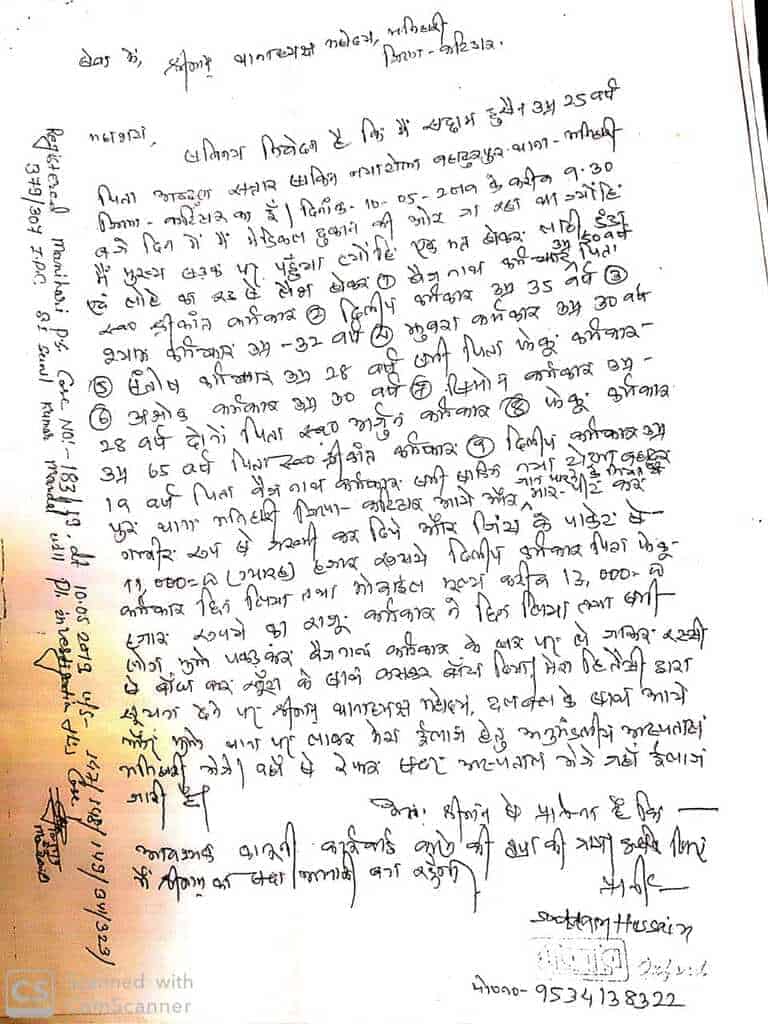 सेवा में, श्रीमान् थानाध्यक्ष महोदय, मनिहारी
जिला - कटिहार.
महाशय,
सविनय निवेदन है कि मैं सद्दाम हुसैन उम्र 25 वर्ष
पिता अब्दुल सत्तार साकिन नयाटोला बहादुरपुर थाना - मनिहारी
जिला - कटिहार का हूँ। दिनांक - 10-05-2019 के करीब 9.30
बजे दिन में मैं मेडिकल दुकान की ओर जा रहा था ज्योंहि
मैं मुख्य सड़क पर पहुँचा त्योंहि एक मत होकर लाठी डंडा
लोहे का रड से लैस होकर ① बैजनाथ कर्मकार उम्र 50 वर्ष पिता
स्व० श्रीकांत कर्मकार ② दिलीप कर्मकार उम्र 35 वर्ष ③
कर्मकार उम्र - 32 वर्ष ④ कर्मकार उम्र 30 वर्ष
⑤ संतोष कर्मकार उम्र 28 वर्ष सभी पिता फेकू कर्मकार -
⑥ अशोक कर्मकार उम्र 30 वर्ष ⑦ कर्मकार उम्र -
28 वर्ष दोनों पिता स्व० अर्जुन कर्मकार ⑧ फेकू कर्मकार
उम्र 65 वर्ष पिता स्व० श्रीकांत कर्मकार ⑨ दिलीप कर्मकार उम्र
19 वर्ष पिता बैजनाथ कर्मकार सभी साकिन नया टोला बहादुर
पुर थाना मनिहारी जिला - कटिहार आये और जान मारने के नियत से मार-पीट कर
गम्भीर रूप से जख्मी कर दिये और जिंस के पाकेट से
11,000=00 (ग्यारह) हजार रूपये दिलीप कर्मकार पिता फेकू -
कर्मकार छिन लिया तथा मोबाईल मूल्य करीब 13,000=00
हजार रूपये का राजू कर्मकार ने छिन लिया तथा सभी
लोग मुझे पकड़कर बैजनाथ कर्मकार के घर पर ले जाकर रस्सी
से बाँध कर खूँटा के साथ कसकर बाँध दिया। मेरा हितैसी द्वारा
सूचना देने पर श्रीमान् थानाध्यक्ष महोदय, दलबल के साथ आये
मुझे थाना पर लाकर मेरा ईलाज हेतु अनुमंडलीय अस्पताल
मनिहारी भेजे। वहाँ से रेफर सदर अस्पताल भेजे जहाँ ईलाज
जारी है।
अतः श्रीमान् से प्रार्थना है कि —
आवश्यक कानूनी कार्रवाई करने की कृपा की जाय
मैं श्रीमान् का सदा आभारी बना रहूँगा
प्रार्थी —
Saddam Hussain
मो०न०- 9534138322
Registered Manihari P.S. Case No:- 183/19. dt 10.05.2019 u/s- 147/148/149/341/323/
379/307 I.P.C. S.I Sunil Kumar Mandal will Pl. investigate this Case.
Scanned with
CamScanner
CS